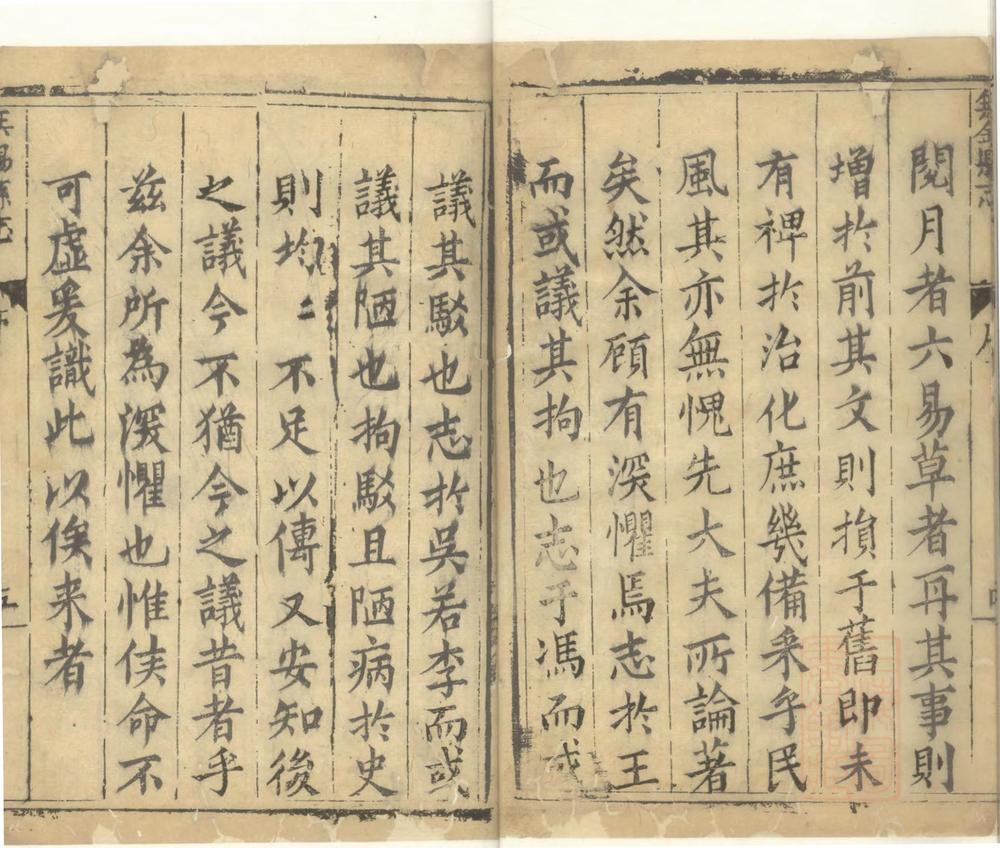 閱月者六易草者再其事則
增扵前其文則損于舊即未
有裨扵治化庶幾備采乎民
風其亦無愧先大夫所論著
矣然余顧有深懼焉志扵王
而或議其拘也志于馮而或
議其駁也志扵吳若李而或
議其陋也拘駁且陋病扵史
則均均不足以傳又安知後
之議今不猶今之議昔者乎
茲余所為深懼也惟俟命不
可虛爰識此以俟来者
無錫縣志
序
五